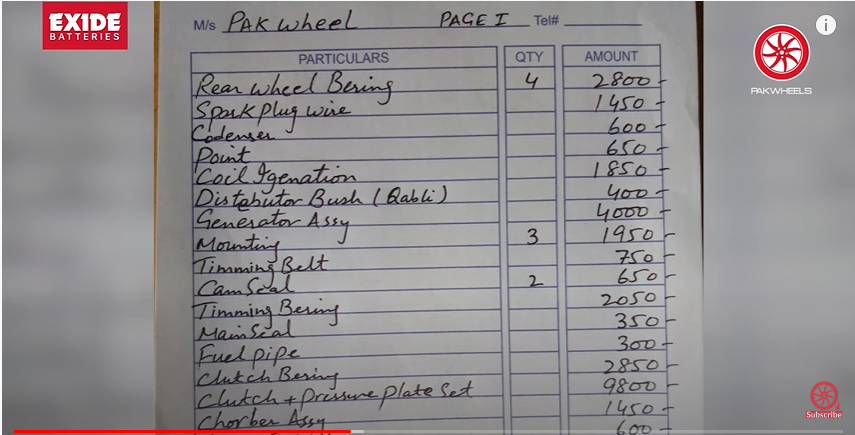 EXIDE
BATTERIES
M/s PAK wheel PAGE I Tel#
i
PAKWHEELS
PARTICULARS QTY AMOUNT
Rear wheel Bering 4 2800-
Spark plug wire 1450-
Codenser 600-
Point 650-
Coil Igenation 1850-
Distabutor Bush (Qabli) 400-
Generator Assy 4000-
Mounting 3 1950-
Timming Belt 750-
Cam Seal 2 650-
Timming Bering 2050-
Main Seal 350-
Fuel pipe 300-
Clutch Bering 2850-
Clutch + Pressure plate Set 9800-
Chorber Assy 1450-
600-
Subscribe